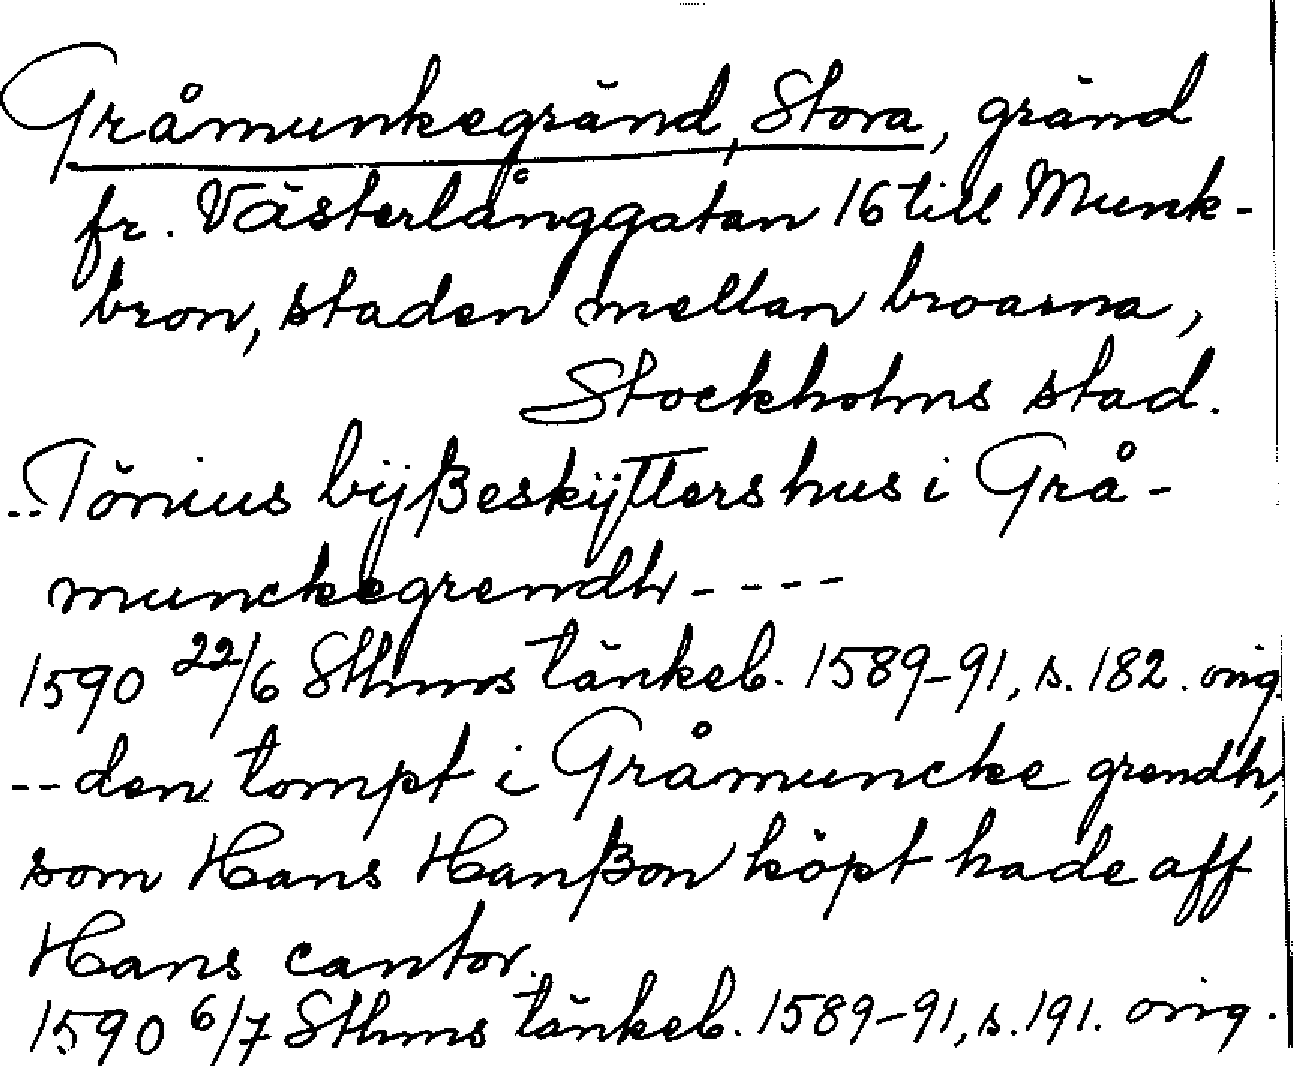 Gråmunkegränd, Stora, gränd
fr. Västerlånggatan 16 till Munk-
bron, staden mellan broarna,
Stockholms stad.
--Tönius bijßeskijtters hus i Grå-
munckegrendh----
1590 22/6 Sthms tänkeb. 1589-91, s. 182. orig.
--den tompt i Gråmuncke grendh,
som Hans Hanßon köpt hade aff
Hans cantor.
1590 6/7 Sthms tänkeb. 1589-91, s. 191. orig.